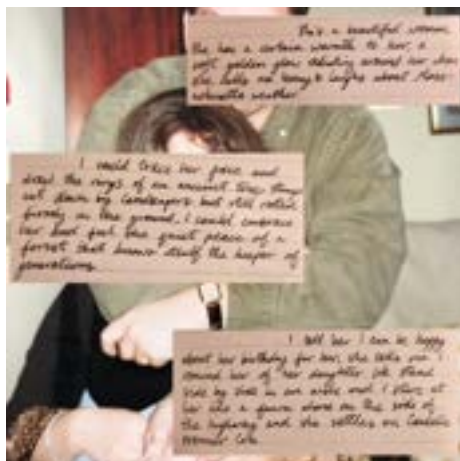 She's a beautiful woman
She has a certain warmth to her, a
soft golden glow radiating around her when
she calls me honey & laughs about
weather
I could trace her face and
draw the rings of an ancient tree, though
cut down by landscapers but still rooted
firmly in the ground. I could embrace
her and feel the quiet peace of a
forest that knows itself the keeper of
generations
I tell her I can be happy
about her birthday for her, she tells me I
remind her of her daughter. We stand
side by side in an and I stare at
her like a fawn alone on the side of
the highway and she settles on